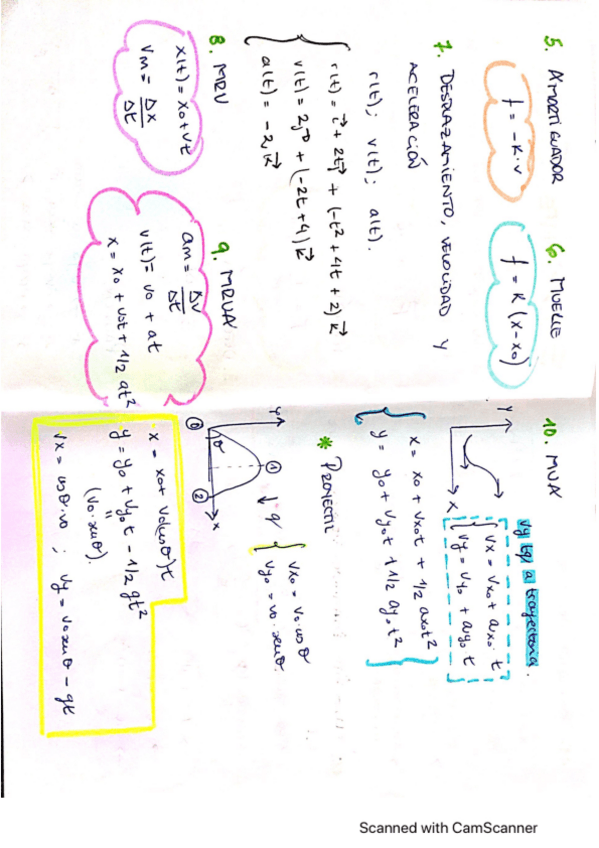 5. AMORTIGUADOR
f = -K·v
6. MUELLE
f = K (x-x₀)
7. DESPLAZAMIENTO, VELOCIDAD Y
ACELERACIÓN
r(t); v(t); a(t).
r(t) = i⃗ + 2tj⃗ + (-t² + 4t + 2) k⃗
v(t) = 2j⃗ + (-2t+4) k⃗
a(t) = -2k⃗
8. MRU
x(t) = x₀ + vt
vm = Δx/Δt
9. MRUA
am = Δv/Δt
v(t) = v₀ + at
x = x₀ + v₀t + 1/2 at²
10. MUA
vy tg a trayectoria.
Y
X
vx = vx₀ + ax₀ · t
vy = vy₀ + ay₀ t
x = x₀ + vx₀t + 1/2 ax₀t²
y = y₀ + vy₀t + 1/2 ay₀t²
* PROYECTIL
Y
θ
0
1
2
x
g
vx₀ = v₀·cosθ
vy₀ = v₀·senθ.
x = x₀ + v₀(cosθ)t
y = y₀ + vy₀t - 1/2 gt²
"
(v₀·senθ).
vx = cosθ·v₀ ; vy = v₀senθ - gt
Scanned with CamScanner